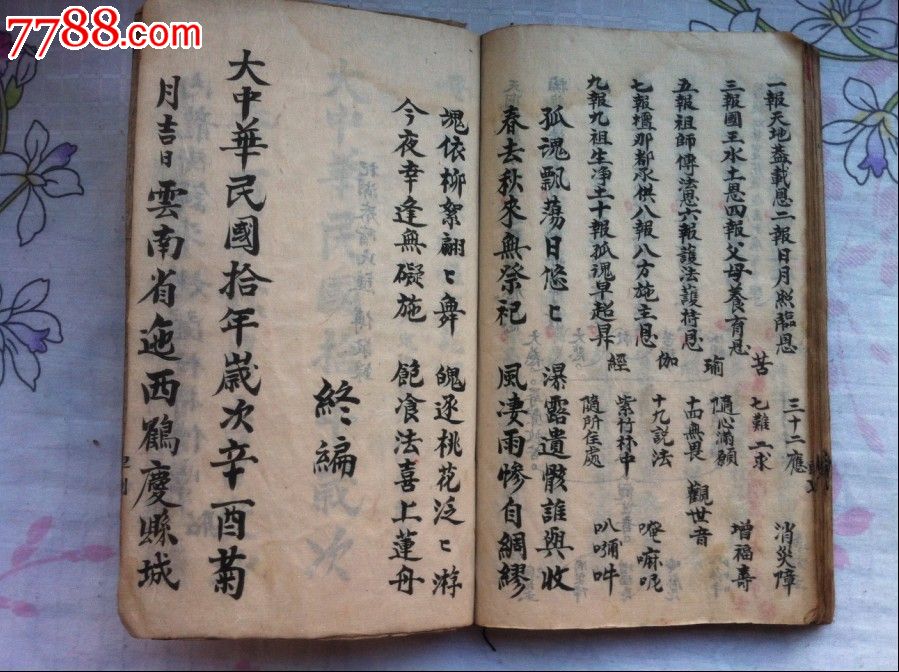 7788.com
一報天地蓋載恩二報日月照臨恩 苦 三十二應 消災障
三報國王水土恩四報父母養育恩 七難二求 增福壽
五報祖師傳法恩六報護法護持恩 瑜 隨心滿願
七報檀那都承供八報八方施主恩 伽 十四無畏 觀世音
九報九祖生净土十報孤魂早超昇 經 十九説法 唵嘛呢
紫竹林中 叭嘛吽
隨所住處
孤魂飄蕩日悠〻 暴露遺骸誰與收
春去秋來無祭祀 風凄雨慘自綢繆
塊依柳絮翩〻舞 魄逐桃花泛〻游
今夜幸逢無礙施 飽飡法喜上蓮舟
終編
大中華民國拾年歲次辛酉菊
月吉日雲南省迤西鶴慶縣城